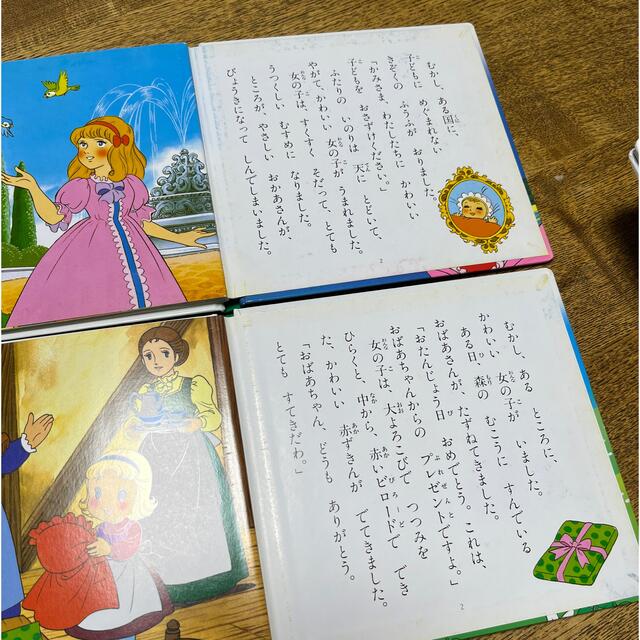 むかし、ある国に、
子どもに めぐまれない
きぞくの ふうふが おりました。
「かみさま、わたしたちに かわいい
子どもを おさずけください。」
ふたりの いのりは 天に とどいて、
やがて、かわいい 女の子が うまれました。
女の子は、すくすく そだって、とても
うつくしい むすめに なりました。
ところが、やさしい おかあさんが、
びょうきになって しんでしまいました。
2
むかし、ある ところに、
かわいい 女の子が いました。
ある日 森の むこうに すんでいる
おばあさんが、たずねてきました。
「おたんじょう日 おめでとう。これは、
おばあちゃんからの プレゼントですよ。」
女の子は、大よろこびで つつみを
ひらくと、中から、赤いビロードで でき
た、かわいい 赤ずきんが でてきました。
「おばあちゃん、どうも ありがとう。
とても すてきだわ。」
2